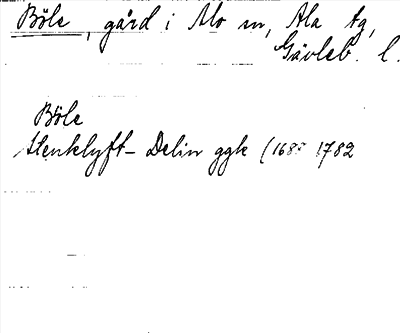 Böle, gård i Mo sn, Ala tg,
Gävleb. l.
Böle
Stenklyft- Delin ggk (168 1782